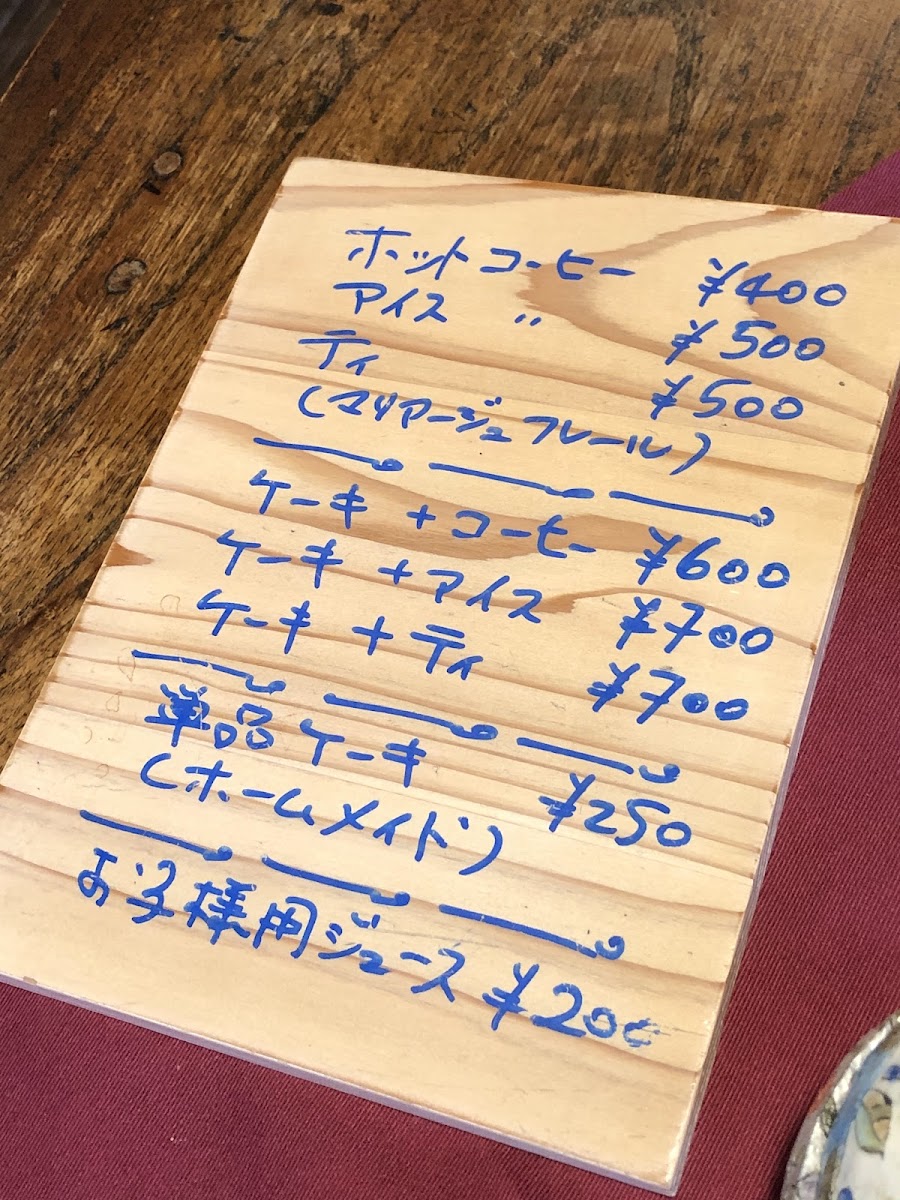 ホットコーヒー ¥400
アイス 〃 ¥500
ティ ¥500
(マリアージュフレール)
ケーキ+コーヒー ¥600
ケーキ+アイス ¥700
ケーキ+ティ ¥700
単品ケーキ ¥250
(ホームメイド)
お子様用ジュース ¥200